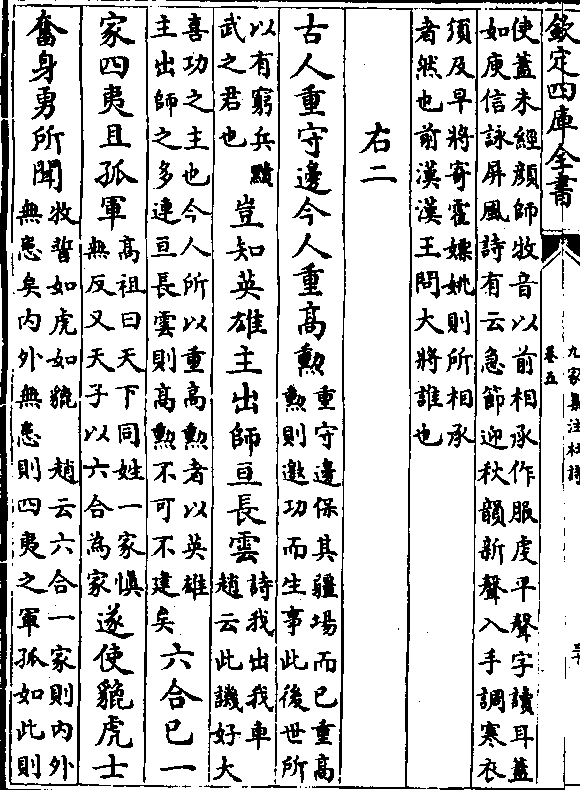 欽定四庫全書
九家集注杜詩
卷五
使蓋未經顔師牧音以前相承作服虔平聲字讀耳蓋
如庾信詠屏風詩有云急節迎秋韻新聲入手調寒衣
須及早將寄霍嫖姚則所相承
者然也前漢漢王問大將誰也
右二
古人重守邊今人重髙勲
重守邊保其疆埸而已重髙
勲則邀功而生事此後世所
以有窮兵黷
武之君也
豈知英雄主出師亘長雲
詩我出我車
趙云此譏好大
喜功之主也今人所以重髙勲者以英雄
主出師之多連亘長雲則髙勲不可不建矣
六合已一
家四夷且孤軍
髙祖曰天下同姓一家慎
無反又天子以六合為家
遂使貔虎士
奮身勇所聞
牧誓如虎如貔 趙云六合一家則内外
無患矣内外無患則四夷之軍孤如此則